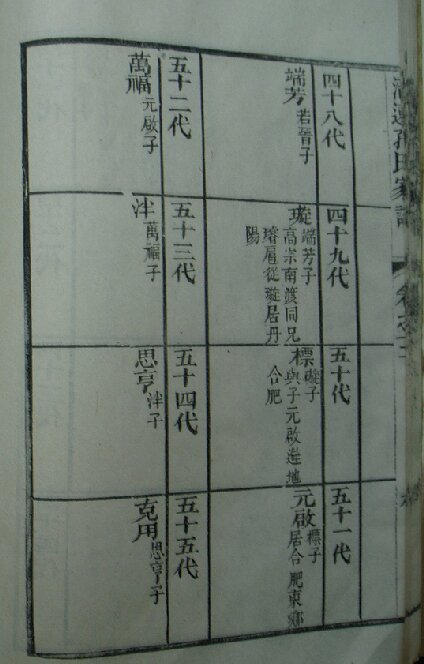 孫氏家譜
四十八代
端芳 若晉子
四十九代
璇 端芳子
高宗南渡同兄
瑢扈從璇居丹
陽
五十代
標 璇子
與子元啟遊地
合肥
五十一代
元啟 標子
居合肥東鄉
五十二代
萬福 元啟子
五十三代
泮 萬福子
五十四代
思亨 泮子
五十五代
克用 思亨子